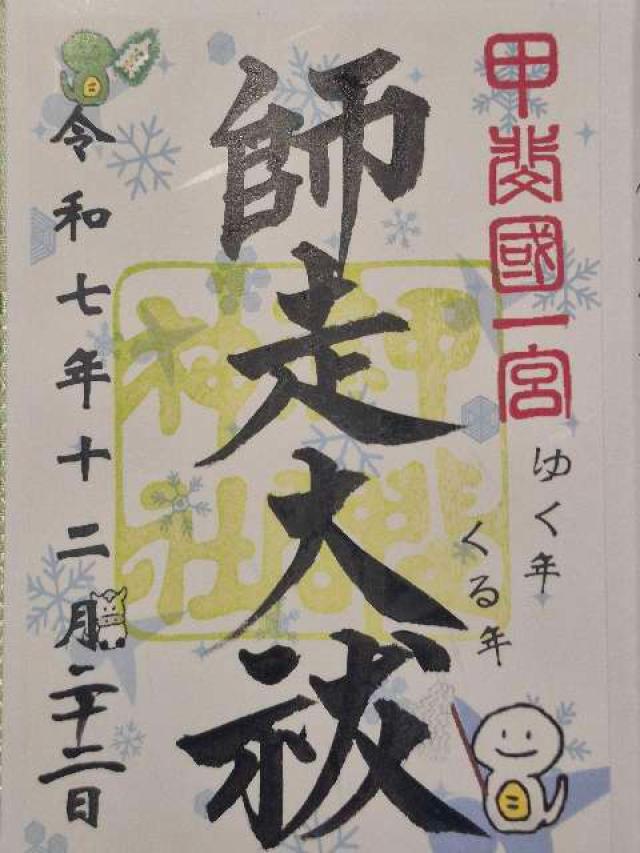 甲斐國一宮
ゆく年
くる年
師走大祓
神社
令和七年十二月二十二日